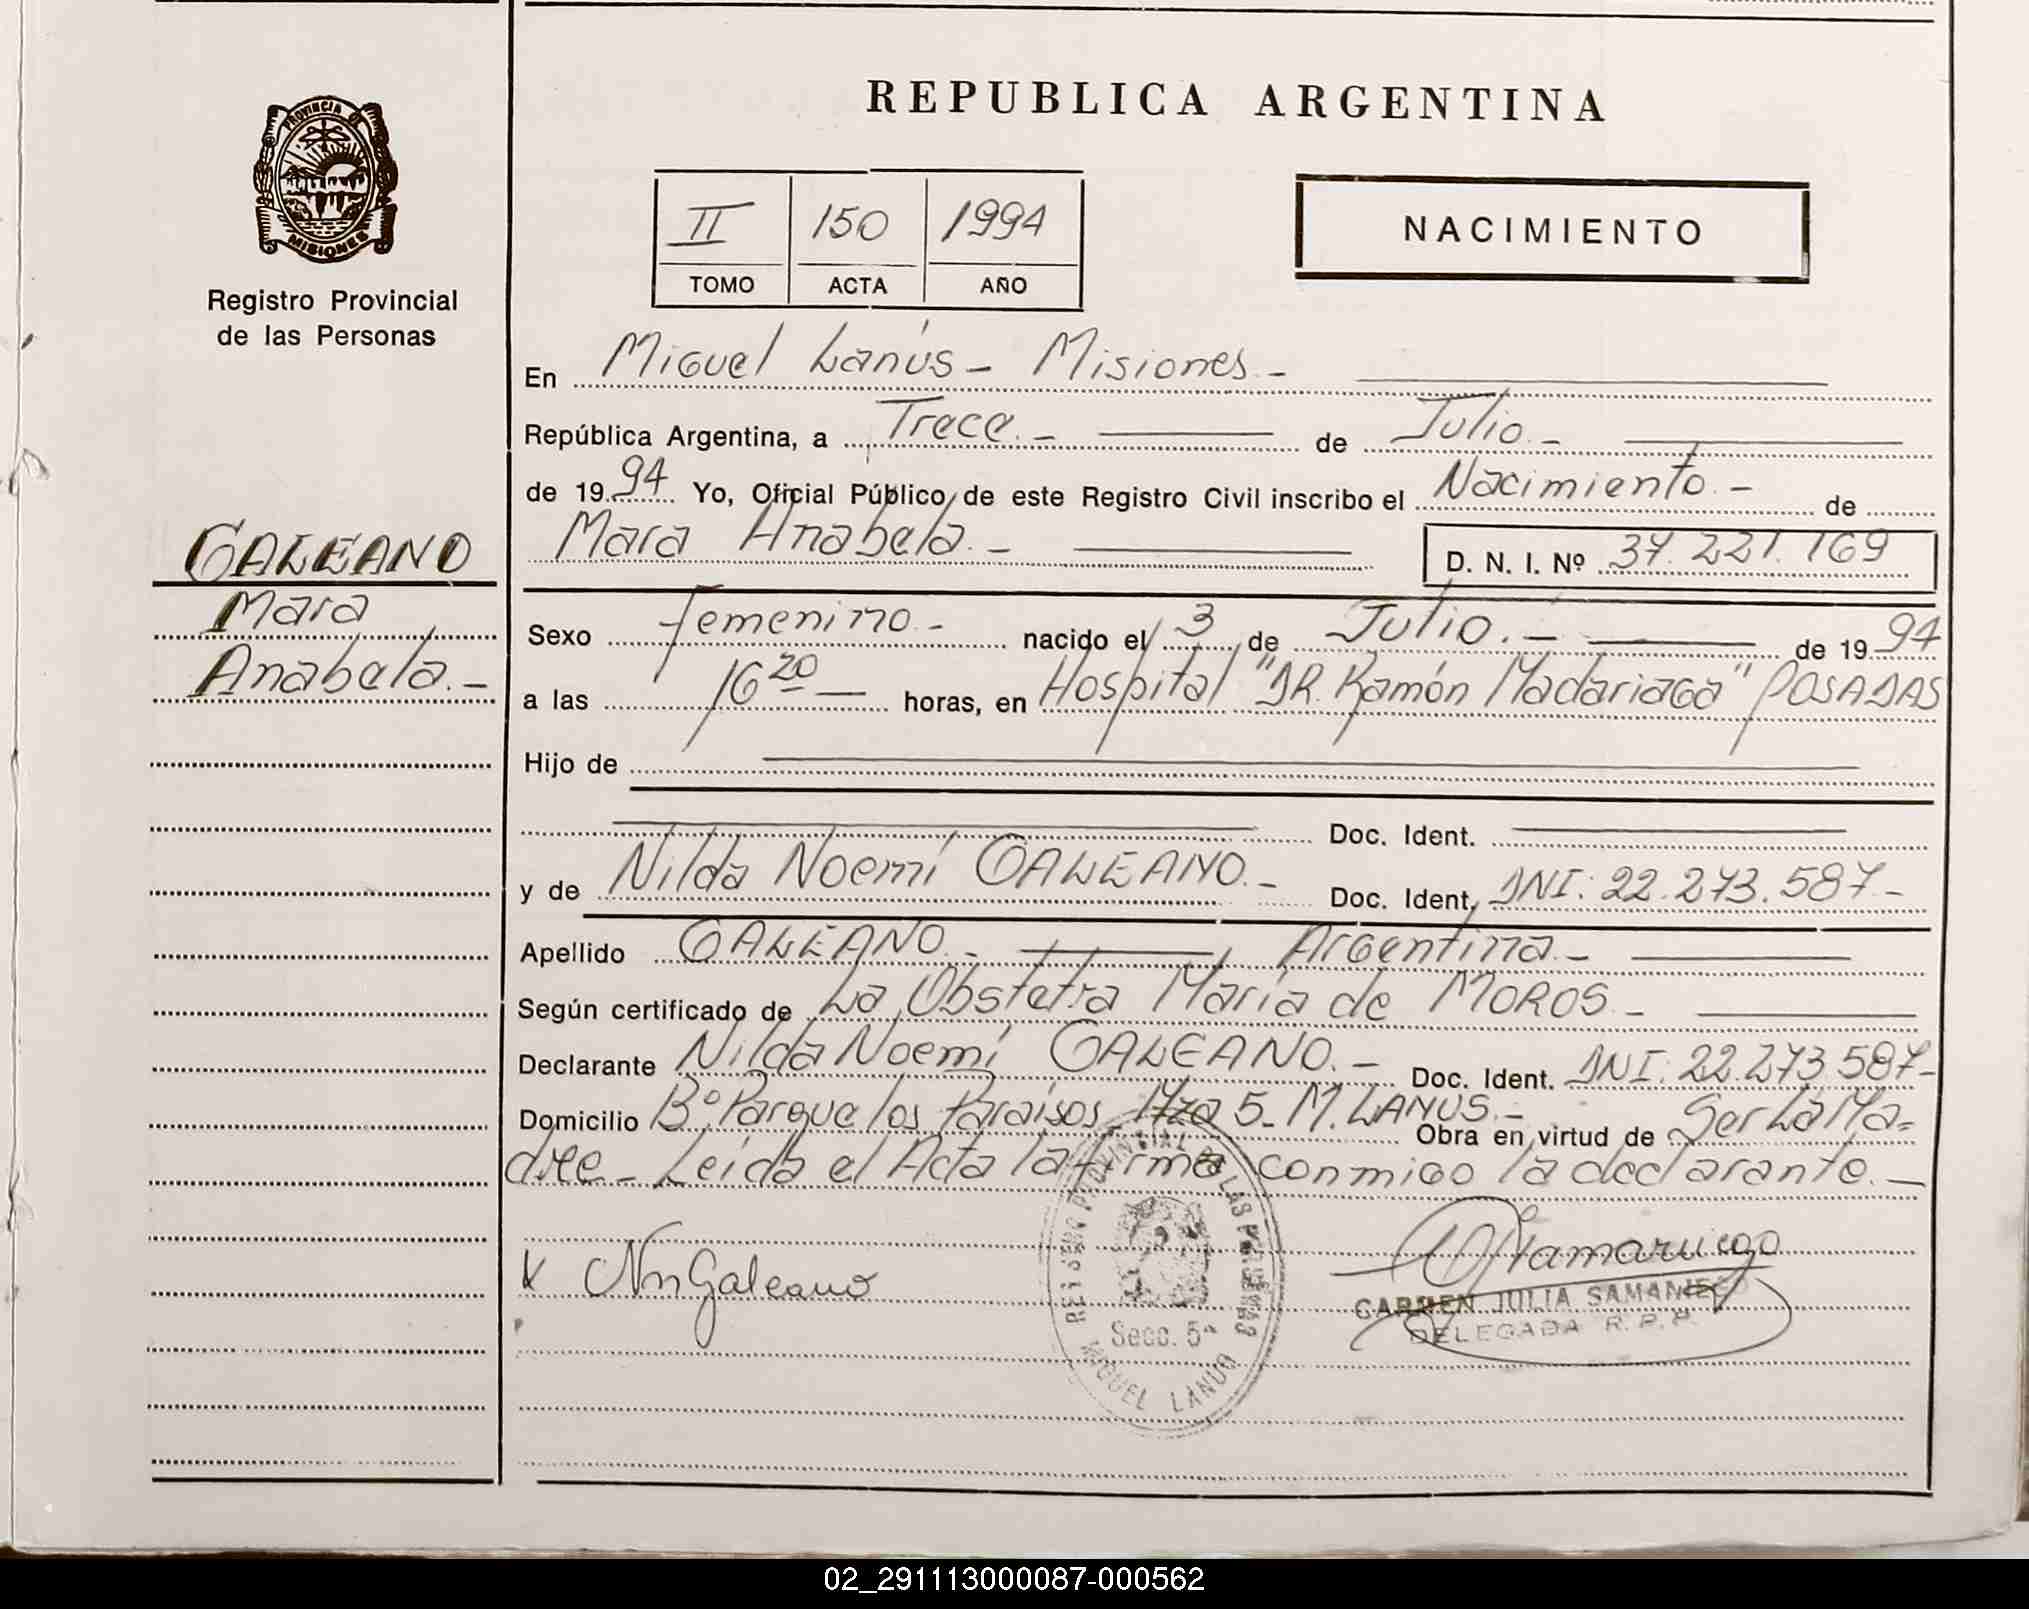 REPUBLICA ARGENTINA
PROVINCIA DE
MISIONES
Registro Provincial
de las Personas
II 150 1994
TOMO ACTA AÑO
NACIMIENTO
En Miguel Lanús - Misiones -
República Argentina, a Trece. - de Julio. -
de 19 94 Yo, Oficial Público, de este Registro Civil inscribo el Nacimiento. - de
Mara Anabela. - D. N. I. Nº 37.221.169
GALEANO
Mara
Anabela. -
Sexo Femenino. - nacido el 3 de Julio. - de 19 94
a las 16 20 horas, en Hospital "DR. Ramón Madariaga" POSADAS
Hijo de
Doc. Ident.
y de Nilda Noemí GALEANO. - Doc. Ident. DNI: 22.273.587 -
Apellido GALEANO. - Argentina. -
Según certificado de La Obstetra María de MOROS. -
Declarante Nilda Noemí GALEANO. - Doc. Ident. DNI: 22.273.587 -
Domicilio Bº Parque los Paraísos - Mza 5 - M. LANUS. - Obra en virtud de Ser La Ma=
dre - Leída el Acta la firma conmigo la declarante. -
X NnGaleano
REGISTRO PROVINCIAL DE LAS PERSONAS
Secc. 5ª
MIGUEL LANUS
CARMEN JULIA SAMANIEGO
DELEGADA R. P. P.
02_291113000087-000562